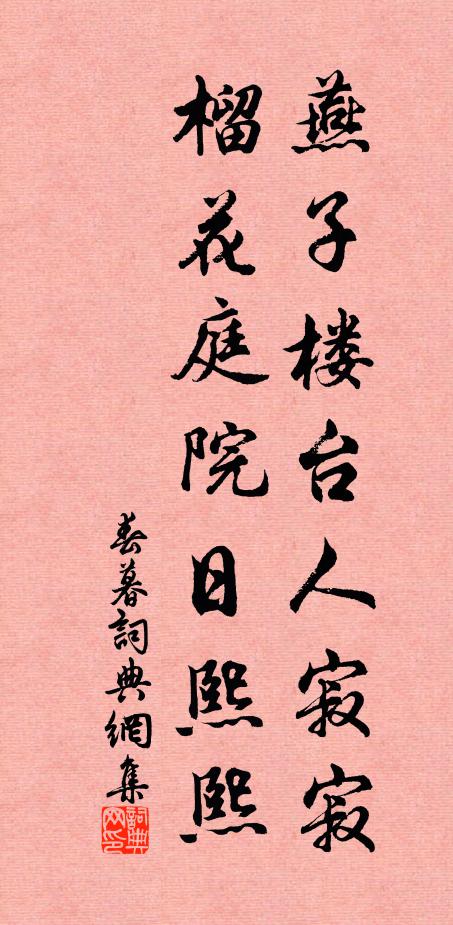 燕子楼台人寂寂
榴花庭院日熙熙
春暮詞典網集
詞典网印